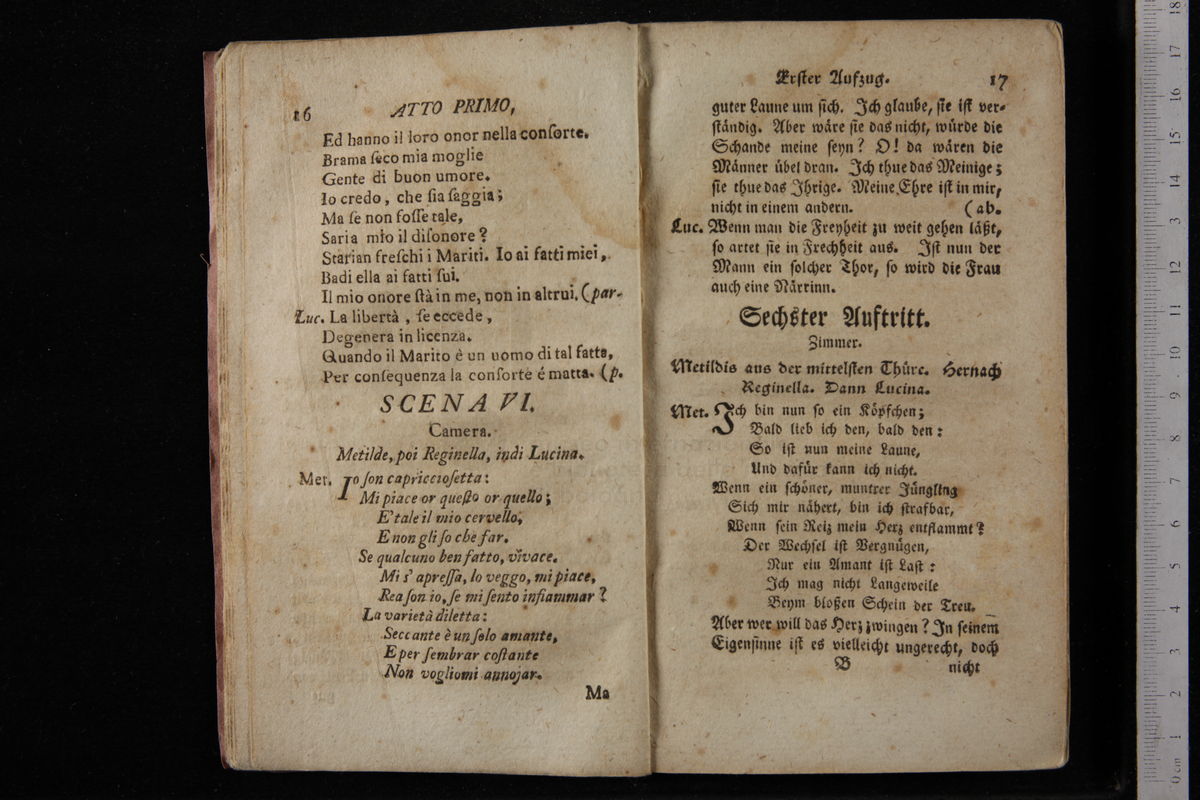 16
ATTO PRIMO,
Ed hanno il loro onor nella conſorte.
Brama ſeco mia moglie
Gente di buon umore.
Io credo, che ſia ſaggia;
Ma ſe non foſſe tale,
Saria mio il diſonore?
Starian freſchi i Mariti. Io ai fatti miei,
Badi ella ai fatti ſui.
Il mio onore ſtà in me, non in altrui. (par-
Luc. La libertà, ſe eccede,
Degenera in licenza.
Quando il Marito è un uomo di tal fatta,
Per conſequenza la conſorte é matta. (p.
SCENA VI.
Camera.
Metilde, poi Reginella, indi Lucina.
Met. Io ſon capriccioſetta:
Mi piace or queſto or quello;
E' tale il mio cervello,
E non gli ſo che far.
Se qualcuno ben fatto, vivace.
Mi s' apreſſa, lo veggo, mi piace,
Rea ſon io, ſe mi ſento infiammar?
La varietà diletta:
Seccante è un ſolo amante,
E per ſembrar coſtante
Non vogliomi annojar.
Ma
Erſter Aufzug.
17
guter Laune um ſich. Ich glaube, ſie iſt ver-
ſtändig. Aber wäre ſie das nicht, würde die
Schande meine ſeyn? O! da wären die
Männer übel dran. Ich thue das Meinige;
ſie thue das Ihrige. Meine Ehre iſt in mir,
nicht in einem andern. (ab.
Luc. Wenn man die Freyheit zu weit gehen läßt,
ſo artet ſie in Frechheit aus. Iſt nun der
Mann ein ſolcher Thor, ſo wird die Frau
auch eine Närrinn.
Sechster Auftritt.
Zimmer.
Metildis aus der mittelſten Thüre. Hernach
Reginella. Dann Lucina.
Met. Ich bin nun ſo ein Köpfchen;
Bald lieb ich den, bald den:
So iſt nun meine Laune,
Und dafür kann ich nicht.
Wenn ein ſchöner, muntrer Jüngling
Sich mir nähert, bin ich ſtrafbar,
Wenn ſein Reiz mein Herz entflammt?
Der Wechſel iſt Vergnügen,
Nur ein Amant iſt Laſt:
Ich mag nicht Langeweile
Beym bloßen Schein der Treu.
Aber wer will das Herz zwingen? In ſeinem
Eigenſinne iſt es vielleicht ungerecht, doch
B
nicht